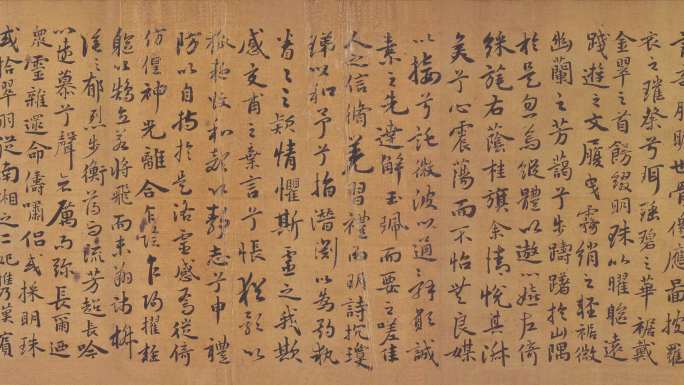 服曠世骨像應圖披羅
衣之璀粲兮珥瑤碧之華裾戴
金翠之首飾綴明珠以曜軀遠
踐遊之文履曳霧綃之輕裾微
幽蘭之芳藹兮步躊躇於山隅
於是忽焉縱體以遨以嬉左倚
綵旄右蔭桂旗余情悅其淑
美兮心震蕩而不怡無良媒
以接兮託微波以通之辭願誠
素之先達解玉珮而要之嗟佳
人之信脩羌習禮而明詩抗瓊
珶以和予兮指潛淵以為期執
眷眷之款情懼斯靈之我欺
感交甫之棄言兮悵猶豫以
狐疑收和顏以靜志兮申禮
防以自持於是洛靈感焉徙倚
彷徨神光離合乍陰乍陽擢輕
軀以鶴立若將飛而未翔踐椒
塗之郁烈步蘅薄而流芳超長吟
以遠慕兮聲哀厲而彌長爾迺
衆靈雜遝命儔嘯侶或採明珠
或拾翠羽從南湘之二妃攜漢濱